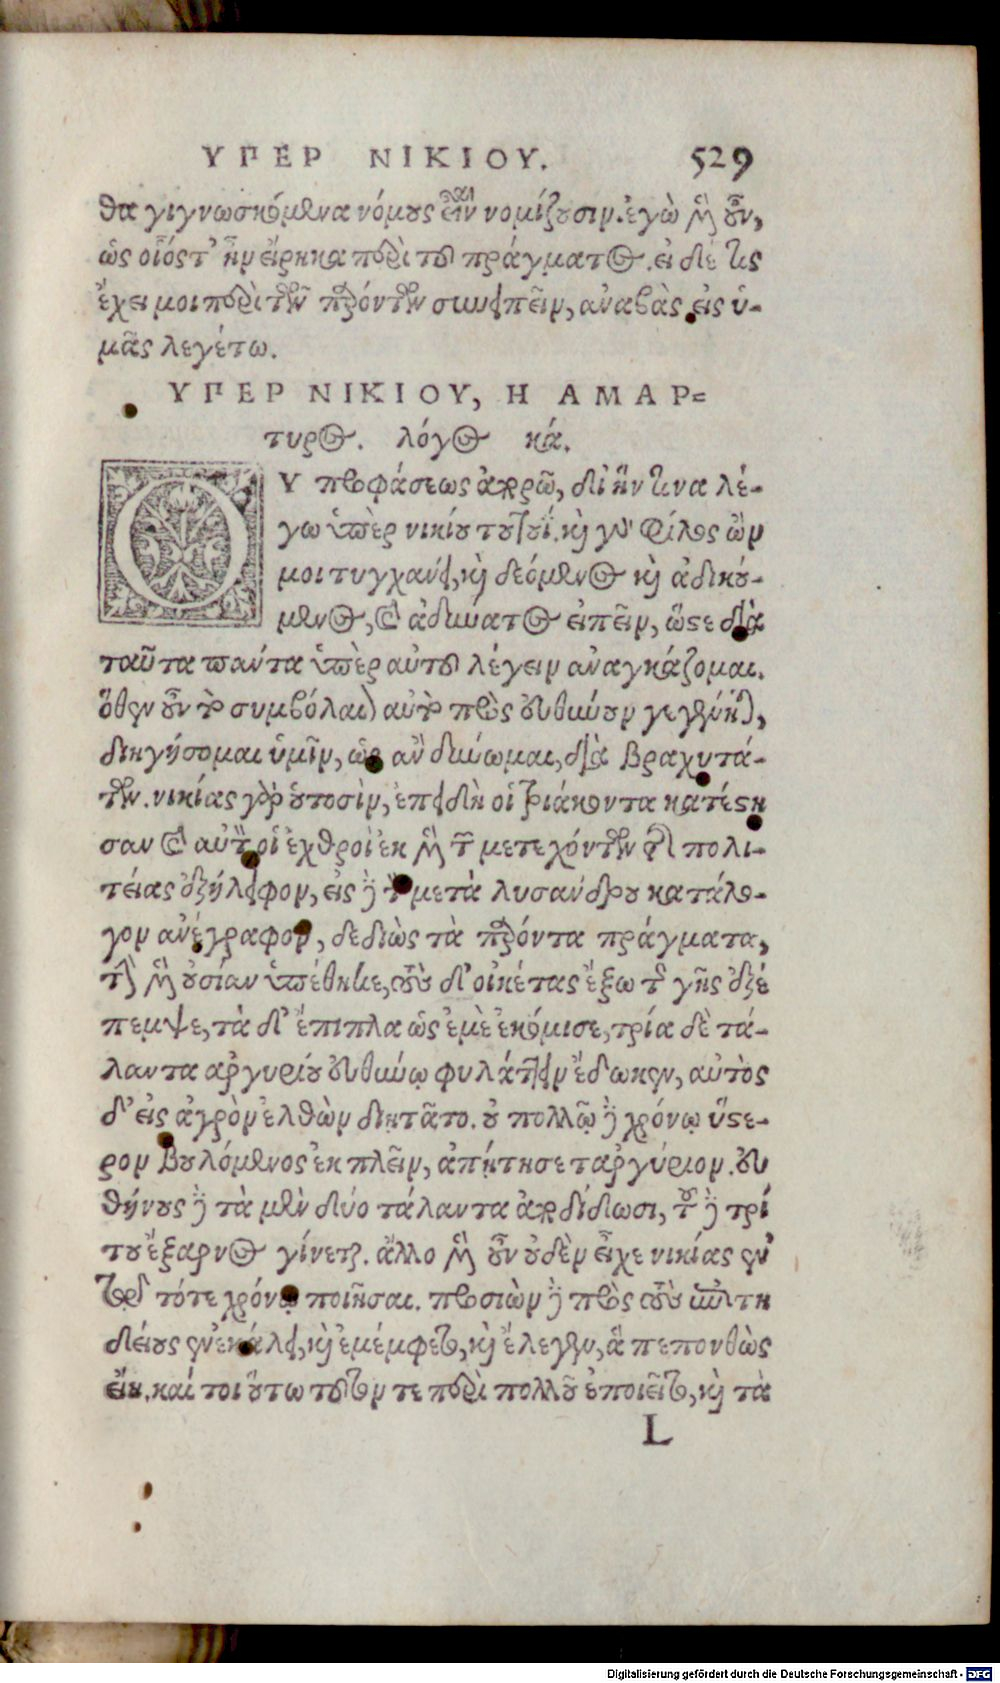 ΥΠΕΡ ΝΙΚΙΟΥ. 529
θα γιγνωσκόμενα νόμους εἶναι νομίζουσιν. ἐγὼ μὲν οὖν,
ὡς οἷός τ' ἦν εἴρηκα περὶ τοῦ πράγματος. εἰ δέ τις
ἔχει μοι περὶ τῶν παρόντων συνειπεῖν, ἀναβὰς εἰς ὑ-
μᾶς λεγέτω.
ΥΠΕΡ ΝΙΚΙΟΥ, Η ΑΜΑΡ=
τυρος. λόγος κά.
ΟΥ προφάσεως ἀπορῶ, δι' ἥν τινα λέ-
γω ὑπὲρ νικίου τουτουΐ. καὶ γὰρ φίλος ὢν
μοι τυγχάνει, καὶ δεόμενος καὶ ἀδικού-
μενος, καὶ ἀδύνατος εἰπεῖν, ὥστε διὰ
ταῦτα πάντα ὑπὲρ αὐτοῦ λέγειν ἀναγκάζομαι.
ὅθεν οὖν τὸ συμβόλαιον αὐτῷ πρὸς εὐθύνουν γεγένηται,
διηγήσομαι ὑμῖν, ὡς ἂν δύνωμαι, διὰ βραχυτά-
των. νικίας γὰρ οὑτοσὶν, ἐπειδὴ οἱ τριάκοντα κατέστη
σαν καὶ αὐτὸν οἱ ἐχθροὶ ἐκ μὲν τῶν μετεχόντων τῆς πολι-
τείας ἐξήλειφον, εἰς δὲ τὸν μετὰ λυσάνδρου κατάλο-
γον ἀνέγραφον, δεδιὼς τὰ παρόντα πράγματα,
τὴν μὲν οὐσίαν ὑπέθηκε, τοὺς δ' οἰκέτας ἔξω τῆς γῆς ἐξέ
πεμψε, τὰ δ' ἔπιπλα ὡς ἐμὲ ἐκόμισε, τρία δὲ τά-
λαντα ἀργυρίου εὐθύνῳ φυλάττειν ἔδωκεν, αὐτὸς
δ' εἰς ἀγρὸν ἐλθὼν διῃτᾶτο. οὐ πολλῷ δὲ χρόνῳ ὕστε-
ρον βουλόμενος ἐκπλεῖν, ἀπῄτησε τἀργύριον. εὐ
θήνους δὲ τὰ μὲν δύο τάλαντα ἀποδίδωσι, τοῦ δὲ τρί
του ἔξαρνος γίνεται. ἄλλο μὲν οὖν οὐδὲν εἶχε νικίας ἐν
τῷ τότε χρόνῳ ποιῆσαι. προσιὼν δὲ πρὸς τοὺς ἐπιτη
δείους ἐνεκάλει, καὶ ἐμέμφετο, καὶ ἔλεγεν, ἃ πεπονθὼς
εἴη. καί τοι οὕτω τοῦτόν τε περὶ πολλοῦ ἐποιεῖτο, καὶ τὰ
L
Digitalisierung gefördert durch die Deutsche Forschungsgemeinschaft - DFG